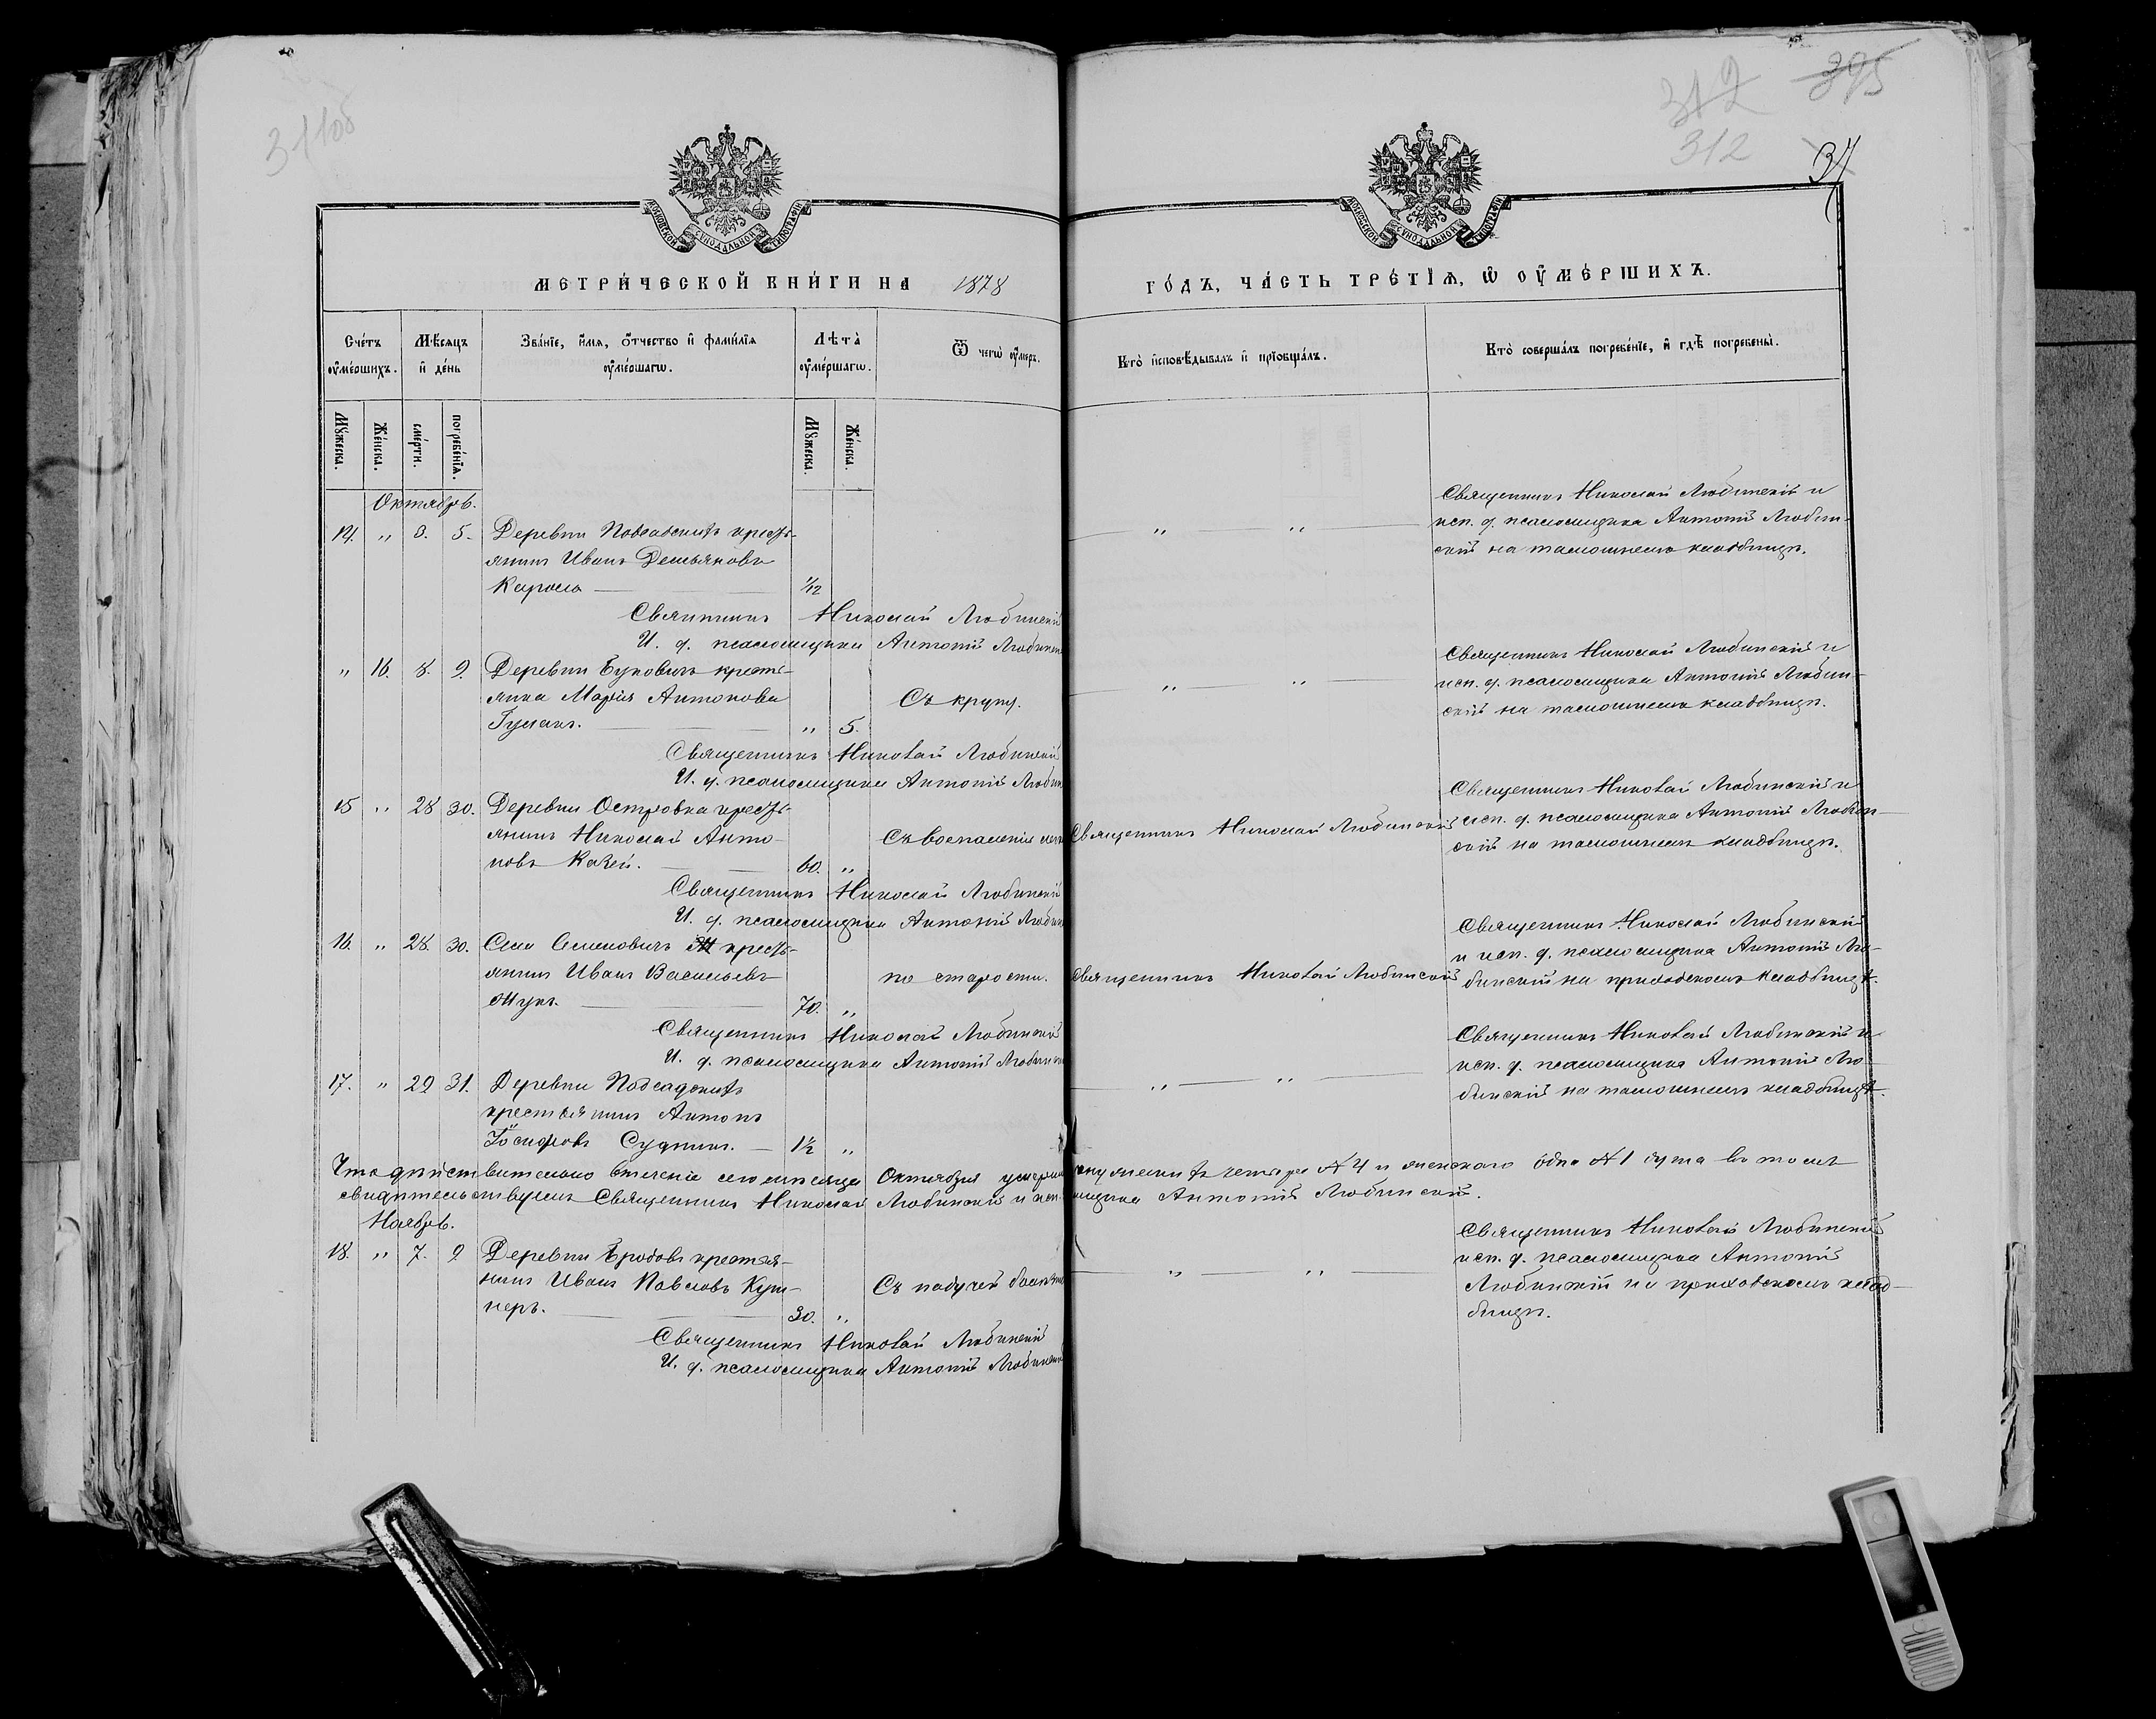 311об
312
395
312
37
МОСКОВСКОЙ СѴНОДАЛЬНОЙ ТИПОГРАФІИ
МОСКОВСКОЙ СѴНОДАЛЬНОЙ ТИПОГРАФІИ
МЕТРИ́ЧЕСКОЙ КНИ́ГИ НА 1878 ГО́ДЪ, ЧА́СТЬ ТРЕ́ТІѦ, Ѽ ОУ҆МЕ́РШИХЪ.
Сче́тъ оу҆ме́ршихъ.
Мѣ́сяцъ и҆ де́нь
Зва́нїе, и҆́мя, ѻ҆́тчество и҆ фамі́лїя оу҆ме́ршагѡ.
Лѣ́та оу҆ме́ршагѡ.
Ѿ чегѡ̀ оу҆́меръ.
Кто̀ и҆сповѣ́дывалъ и҆ прїѡбща́лъ.
Кто̀ соверша́лъ погребе́нїе, и҆ гдѣ̀ погребены̀.
Мꙋ́жеска.
Же́нска.
сме́рти.
погребе́нїѧ.
Мꙋ́жеска.
Же́нска.
Октябрь.
14. " 3. 5. Деревни Подсадскихъ кресть-
янинъ Иванъ Демьяновъ
Кароль 1/12
" "
Священникъ Николай Любинскій и
исп. д. псаломщика Антоній Любин-
скій на тамошнемъ кладбищѣ.
Священникъ Николай Любинскій
И. д. псаломщика Антоній Любинскій
" 16. 8. 9. Деревни Буковичъ кресть-
янка Марія Антонова
Гумакъ. " 5.
Съ крупу.
" "
Священникъ Николай Любинскій и
исп. д. псаломщика Антоній Любин-
скій на тамошнемъ кладбищѣ.
Священникъ Николай Любинскій
И. д. псаломщика Антоній Любин
15 " 28 30. Деревни Островка кресть-
янинъ Николай Анто-
новъ Казей. 60. "
Съ воспаленія
Священникъ Николай Любинскій
Священникъ Николай Любинскій и
исп. д. псаломщика Антоній Любин-
скій на тамошнемъ кладбищѣ.
Священникъ Николай Любинскій
И. д. псаломщика Антоній Любин
16. " 28. 30. Села Семеновичъ кресть-
янинъ Иванъ Васильевъ
Жукъ. 70. "
по старости.
Священникъ Николай Любинскій
Священникъ Николай Любинскій
и исп. д. псаломщика Антоній Лю-
бинскій на приходскомъ кладбищѣ.
Священникъ Николай Любинскій
И. д. псаломщика Антоній Любинск
17. " 29 31. Деревни Подсадскихъ
крестьянинъ Антонъ
Іосифовъ Судникъ. 1½ "
" "
Священникъ Николай Любинскій и
исп. д. псаломщика Антоній Лю-
бинскій на тамошнемъ кладбищѣ.
Что дѣйствительно втеченіе сего мѣсяца Октября умерло мужескихъ четыре №4 и женского одна №1 душа въ томъ
свидѣтельствуемъ Священникъ Николай Любинскій и исп. псаломщика Антоній Любинскій.
Ноябрь.
18. " 7. 9 Деревни Бродовъ крестья-
нинъ Иванъ Павловъ Куш-
неръ. 30. "
Съ падучей болѣзни
" "
Священникъ Николай Любинскій
исп. д. псаломщика Антоній
Любинскій на приходскомъ клад-
бищѣ.
Священникъ Николай Любинскій
И. д. псаломщика Антоній Любинскій